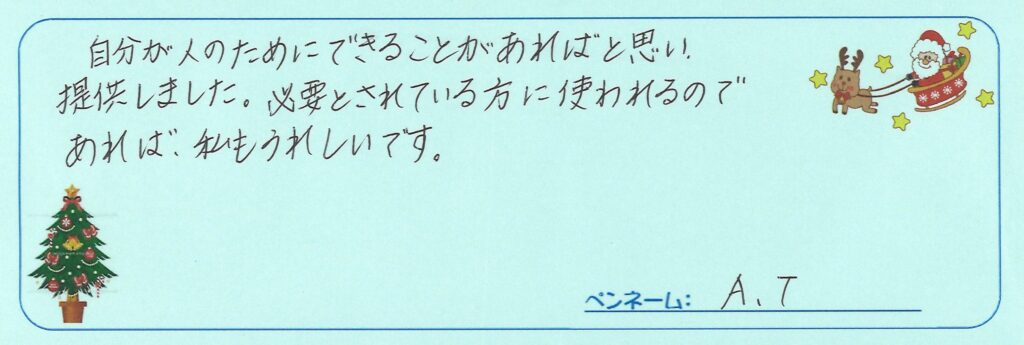 自分が人のためにできることがあればと思い、
提供しました。必要とされている方に使われるので
あれば、私もうれしいです。
ペンネーム: A、T